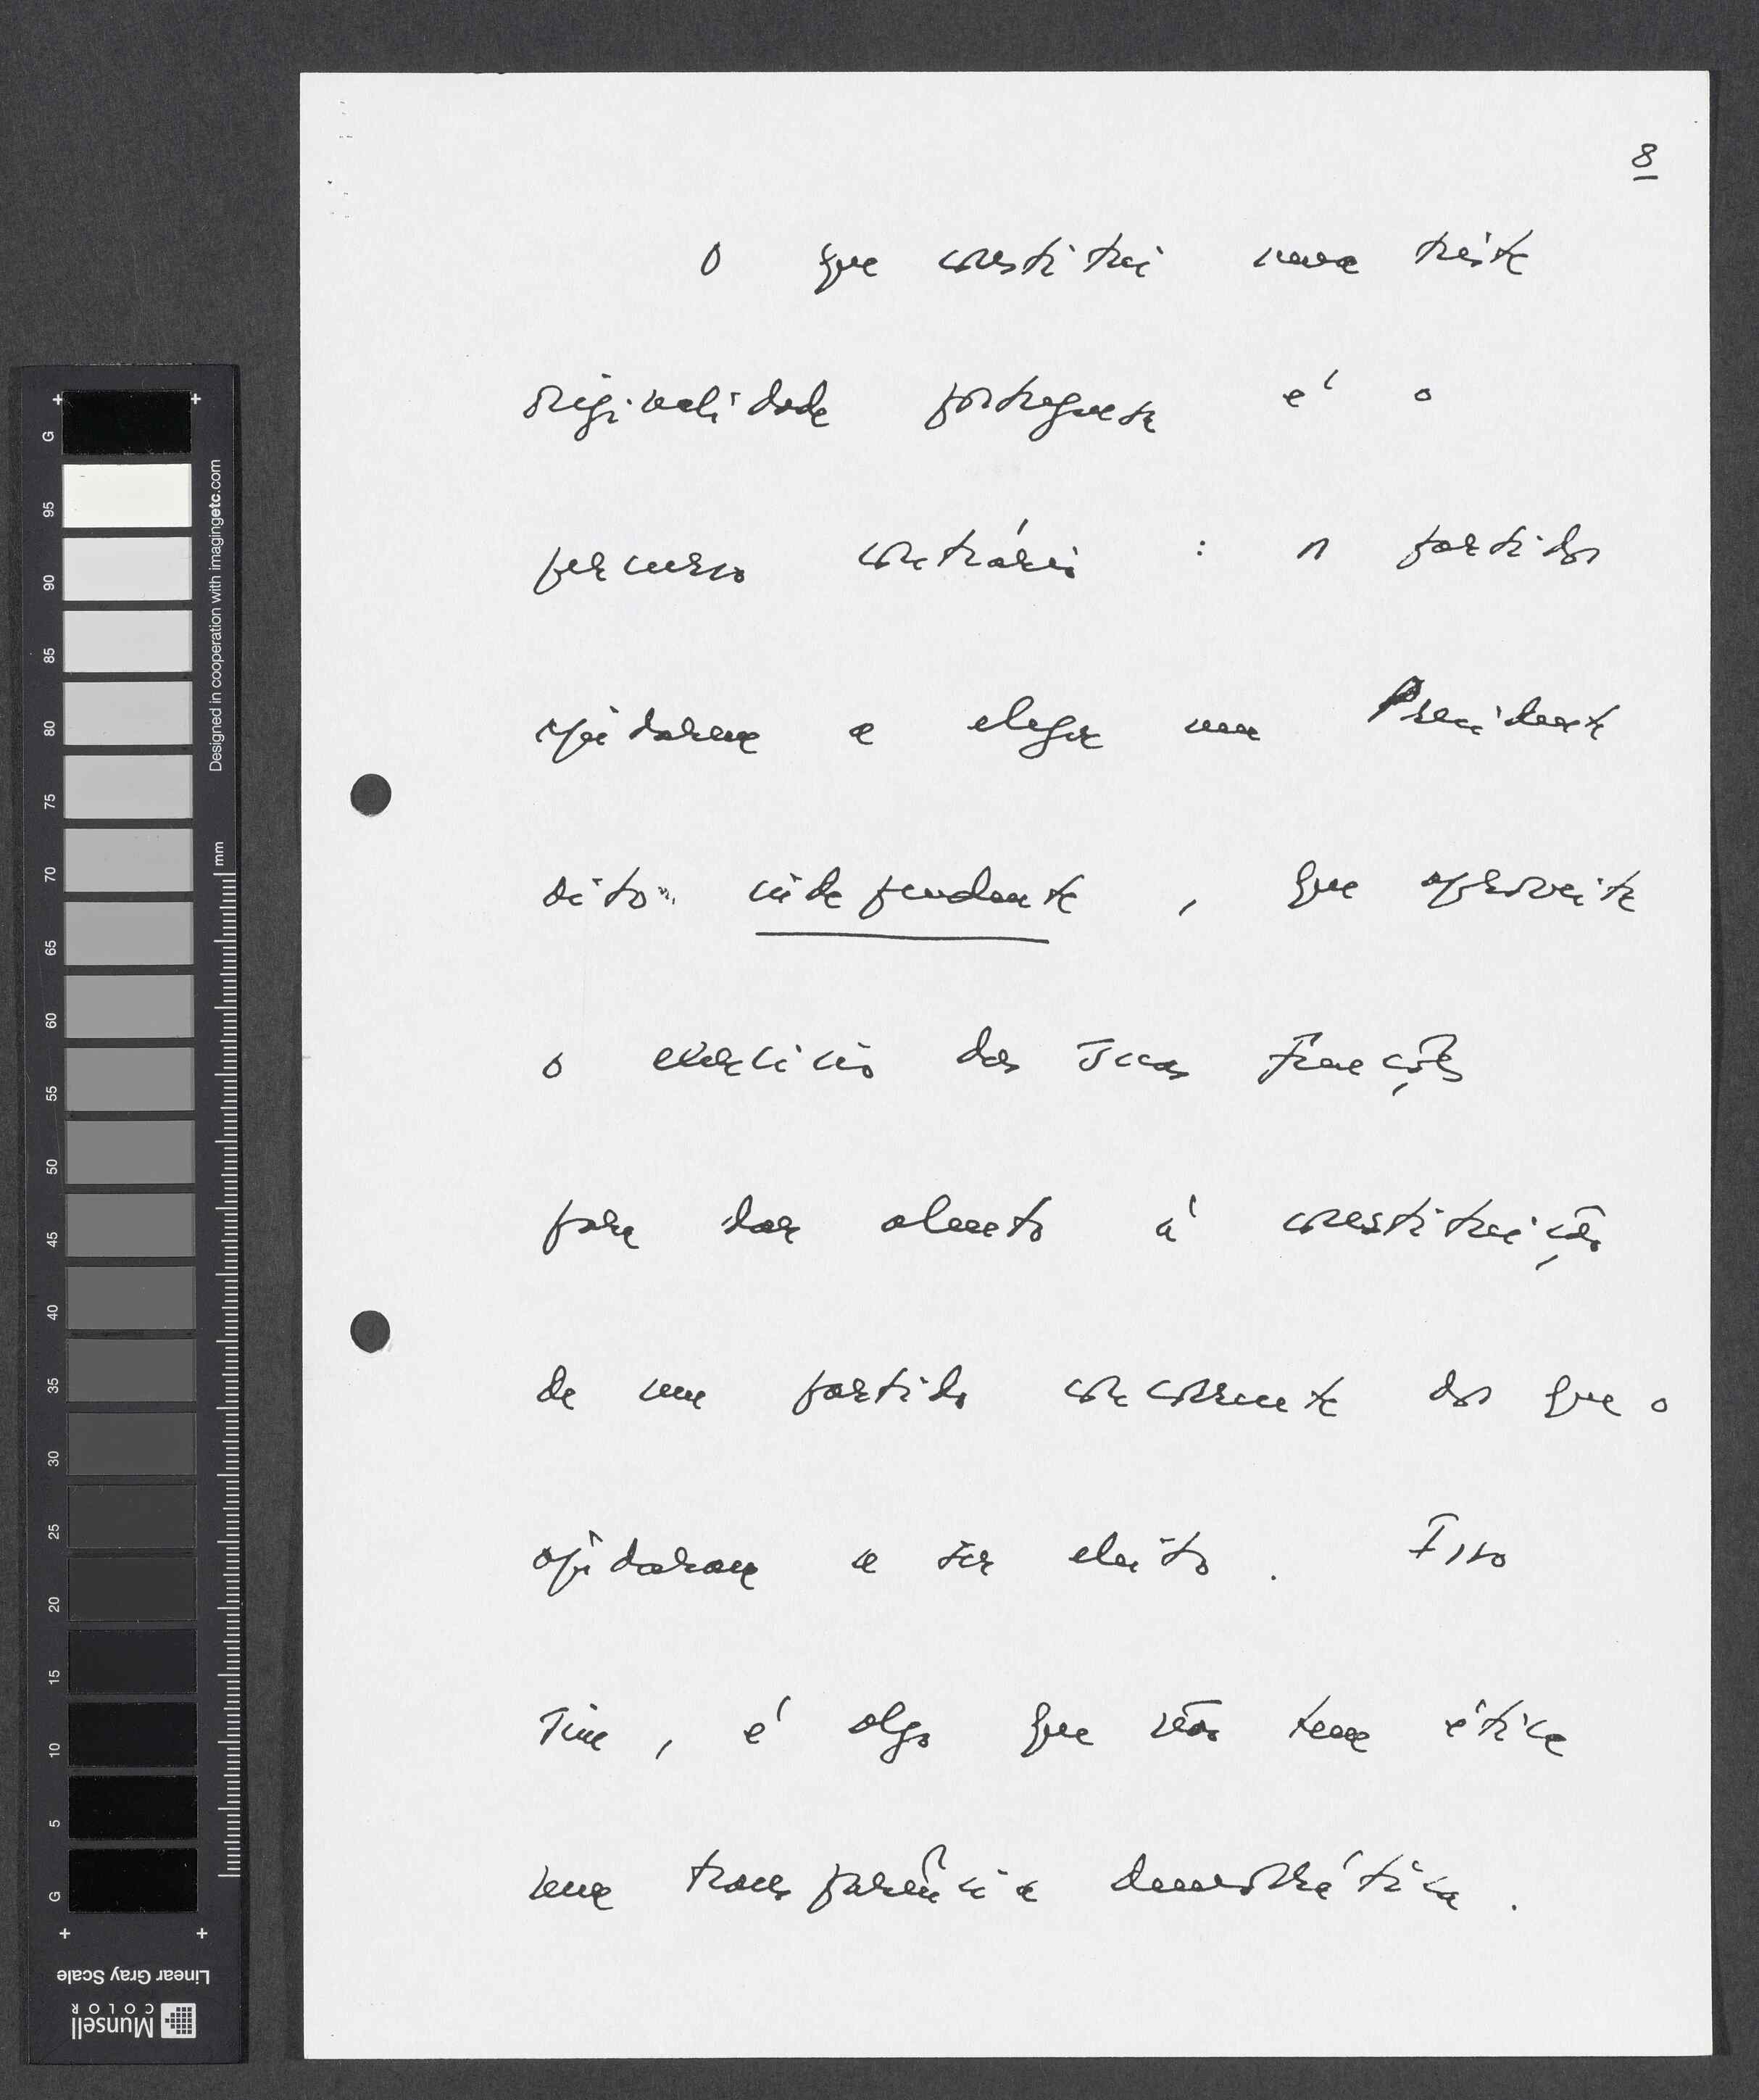 8
O que constitui uma triste
originalidade portuguesa é o
percurso contrário : os partidos
ajudaram a eleger um Presidente
dito independente , que aproveita
o exercício das suas funções
para dar alento à constituição
de um partido concorrente dos que o
ajudaram a ser eleito . Isso
sim , é algo que não tem ética
nem transparência democrática .
G
95
90
85
80
75
70
65
60
55
50
45
40
35
30
25
20
15
10
5
G
Designed in cooperation with imagingetc.com
mm
Linear Gray Scale
Munsell
COLOR